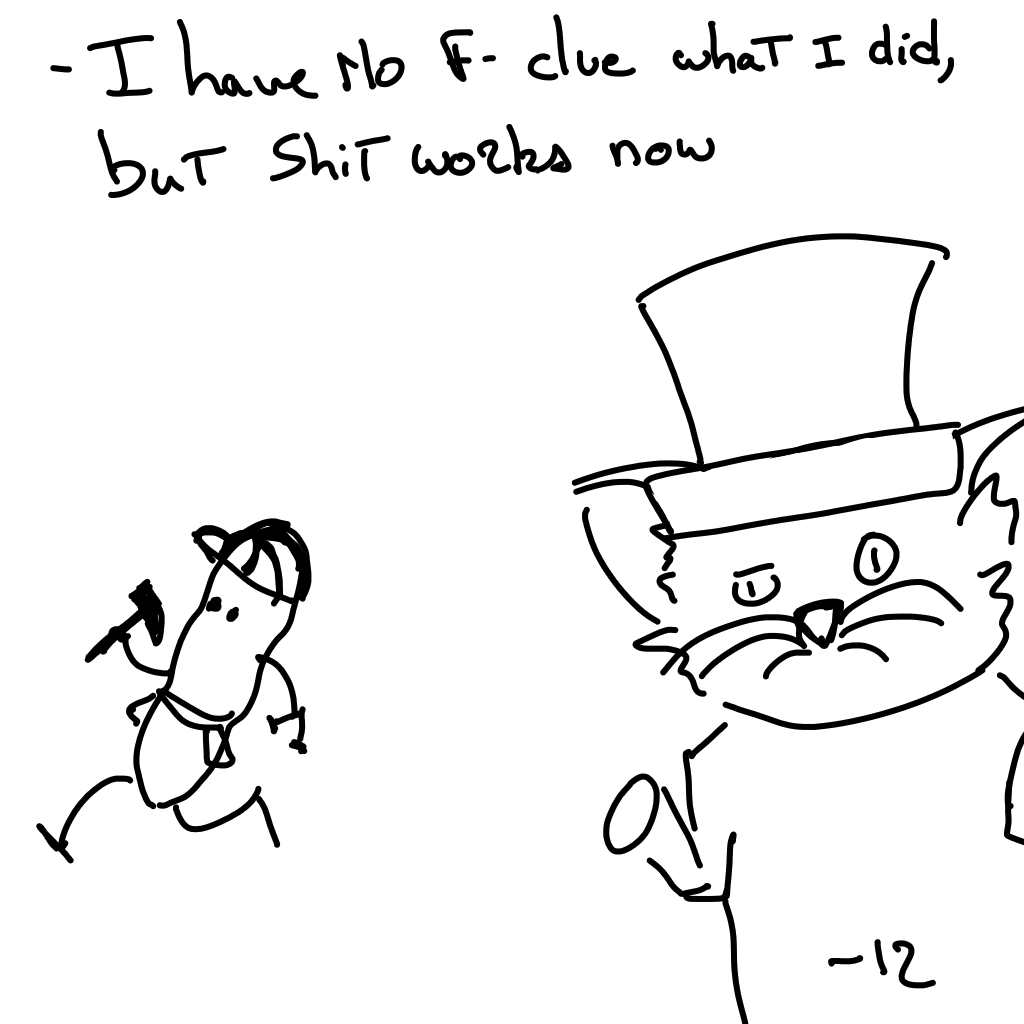 - I have No F- clue what I did,
but Shit works now
-12